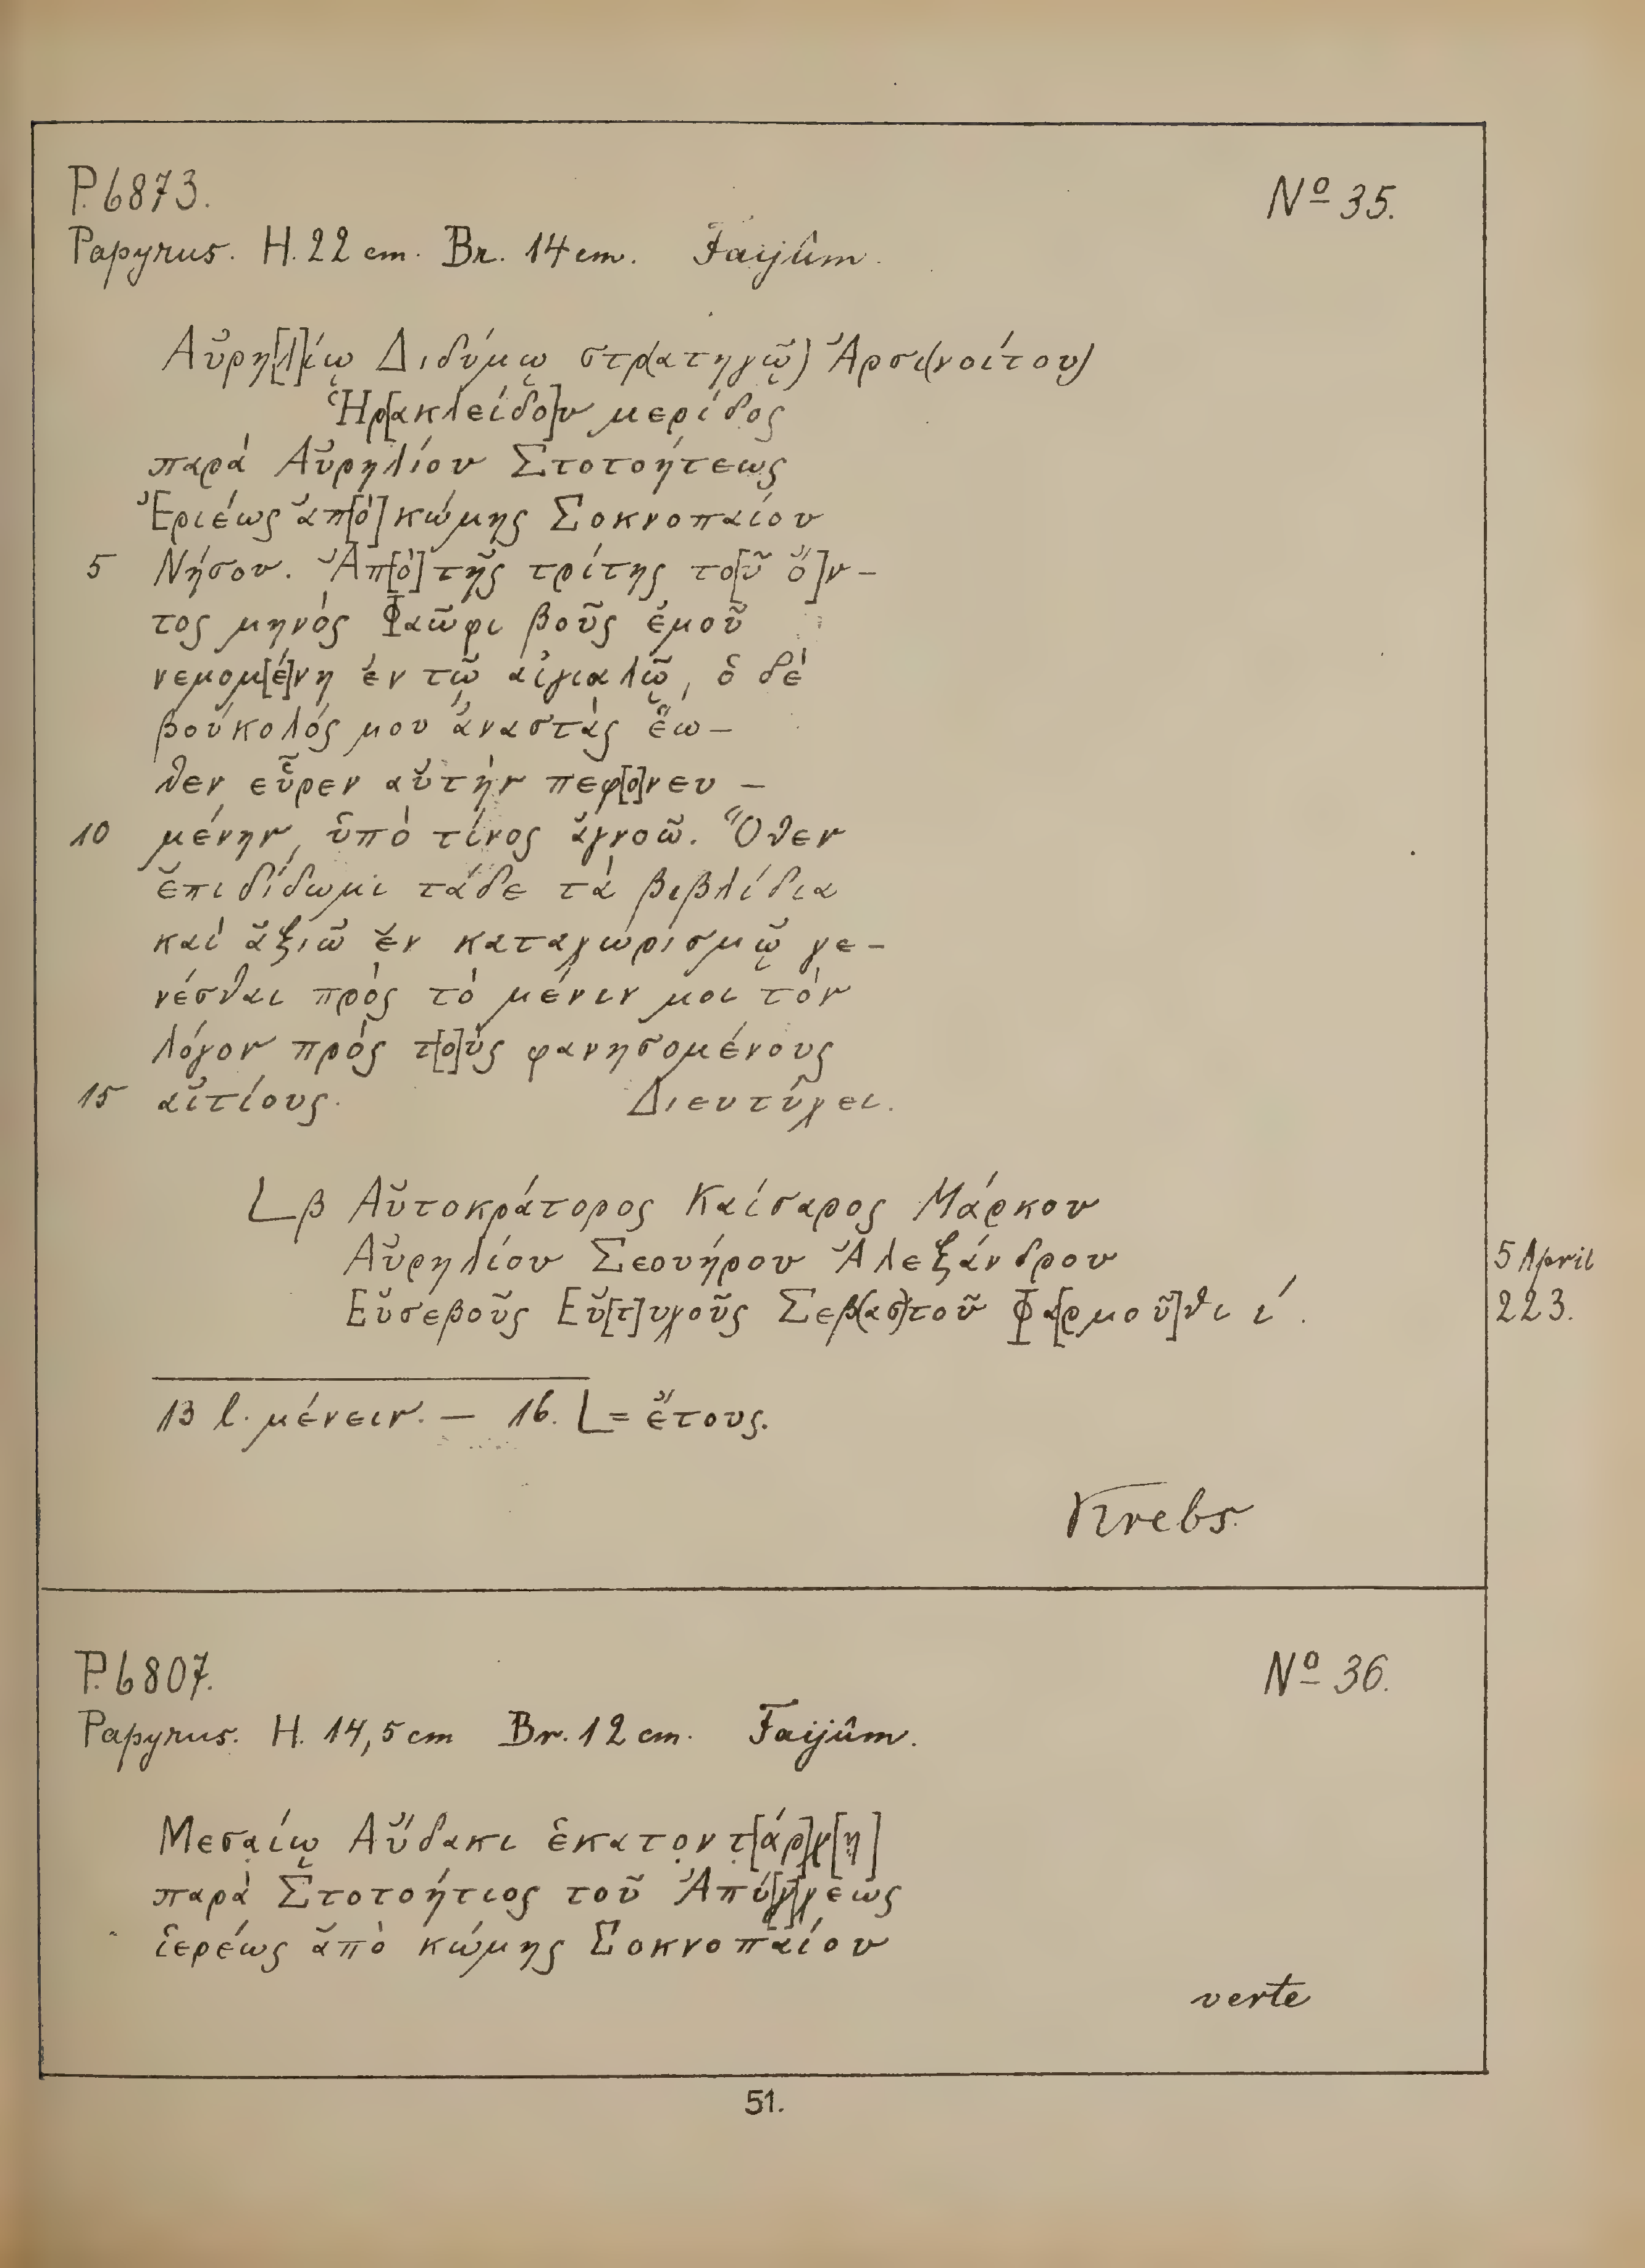 P. 6873.
Nº 35.
Papyrus. H. 22 cm. Br. 14 cm. Faijûm.
Αὐρη[λ]ίῳ Διδύμῳ στρ(ατηγῷ) Ἀρσι(νοίτου)
Ἡρ[ακλείδο]υ μερίδος
παρὰ Αὐρηλίου Στοτοήτεως
Ἑριέως ἀπ[ὸ] κώμης Σοκνοπαίου
5 Νήσου. Ἀπ[ὸ] τῆς τρίτης το[ῦ ὄ]ν-
τος μηνὸς Φαῶφι βοῦς ἐμοῦ
νεμομ[έ]νη ἐν τῷ αἰγιαλῷ, ὁ δὲ
βουκολός μου ἀναστὰς ἕω-
θεν εὗρεν αὐτὴν πεφ[ο]νευ-
10 μένην, ὑπὸ τίνος ἀγνοῶ. Ὅθεν
ἐπιδίδωμι τάδε τὰ βιβλίδια
καὶ ἀξιῶ ἐν καταχωρισμῷ γε-
νέσθαι πρὸς τὸ μένιν μοι τὸν
λόγον πρὸς τ[ο]ὺς φανησομένους
15 αἰτίους. Διευτύχει.
L β Αὐτοκράτορος Καίσαρος Μάρκου
Αὐρηλίου Σεουήρου Ἀλεξάνδρου
5 April
Εὐσεβοῦς Εὐ[τ]υχοῦς Σεβ(ασ)τοῦ Φα[ρμοῦ]θι ι´.
223.
13 l. μένειν. — 16. L = ἔτους.
Krebs.
P. 6807.
Nº 36.
Papyrus. H. 14,5 cm Br. 12 cm. Faijûm.
Μεσαίῳ Αὔδακι ἑκατοντ[άρ]χ[ῃ]
παρὰ Στοτοήτιος τοῦ Ἀπύ[γ]χεως
ἱερέως ἀπὸ κώμης Σοκνοπαίου
verte
51.